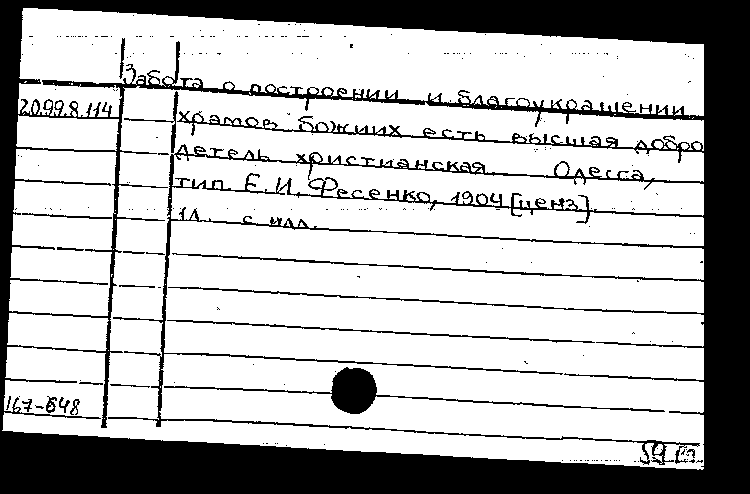 Забота о построении и благоукрашении
20.99.8.114
храмов божиих есть высшая добро
детель христианская. Одесса,
тип. Е. И. Фесенко, 1904 [ценз].
1л. с илл.
167-648